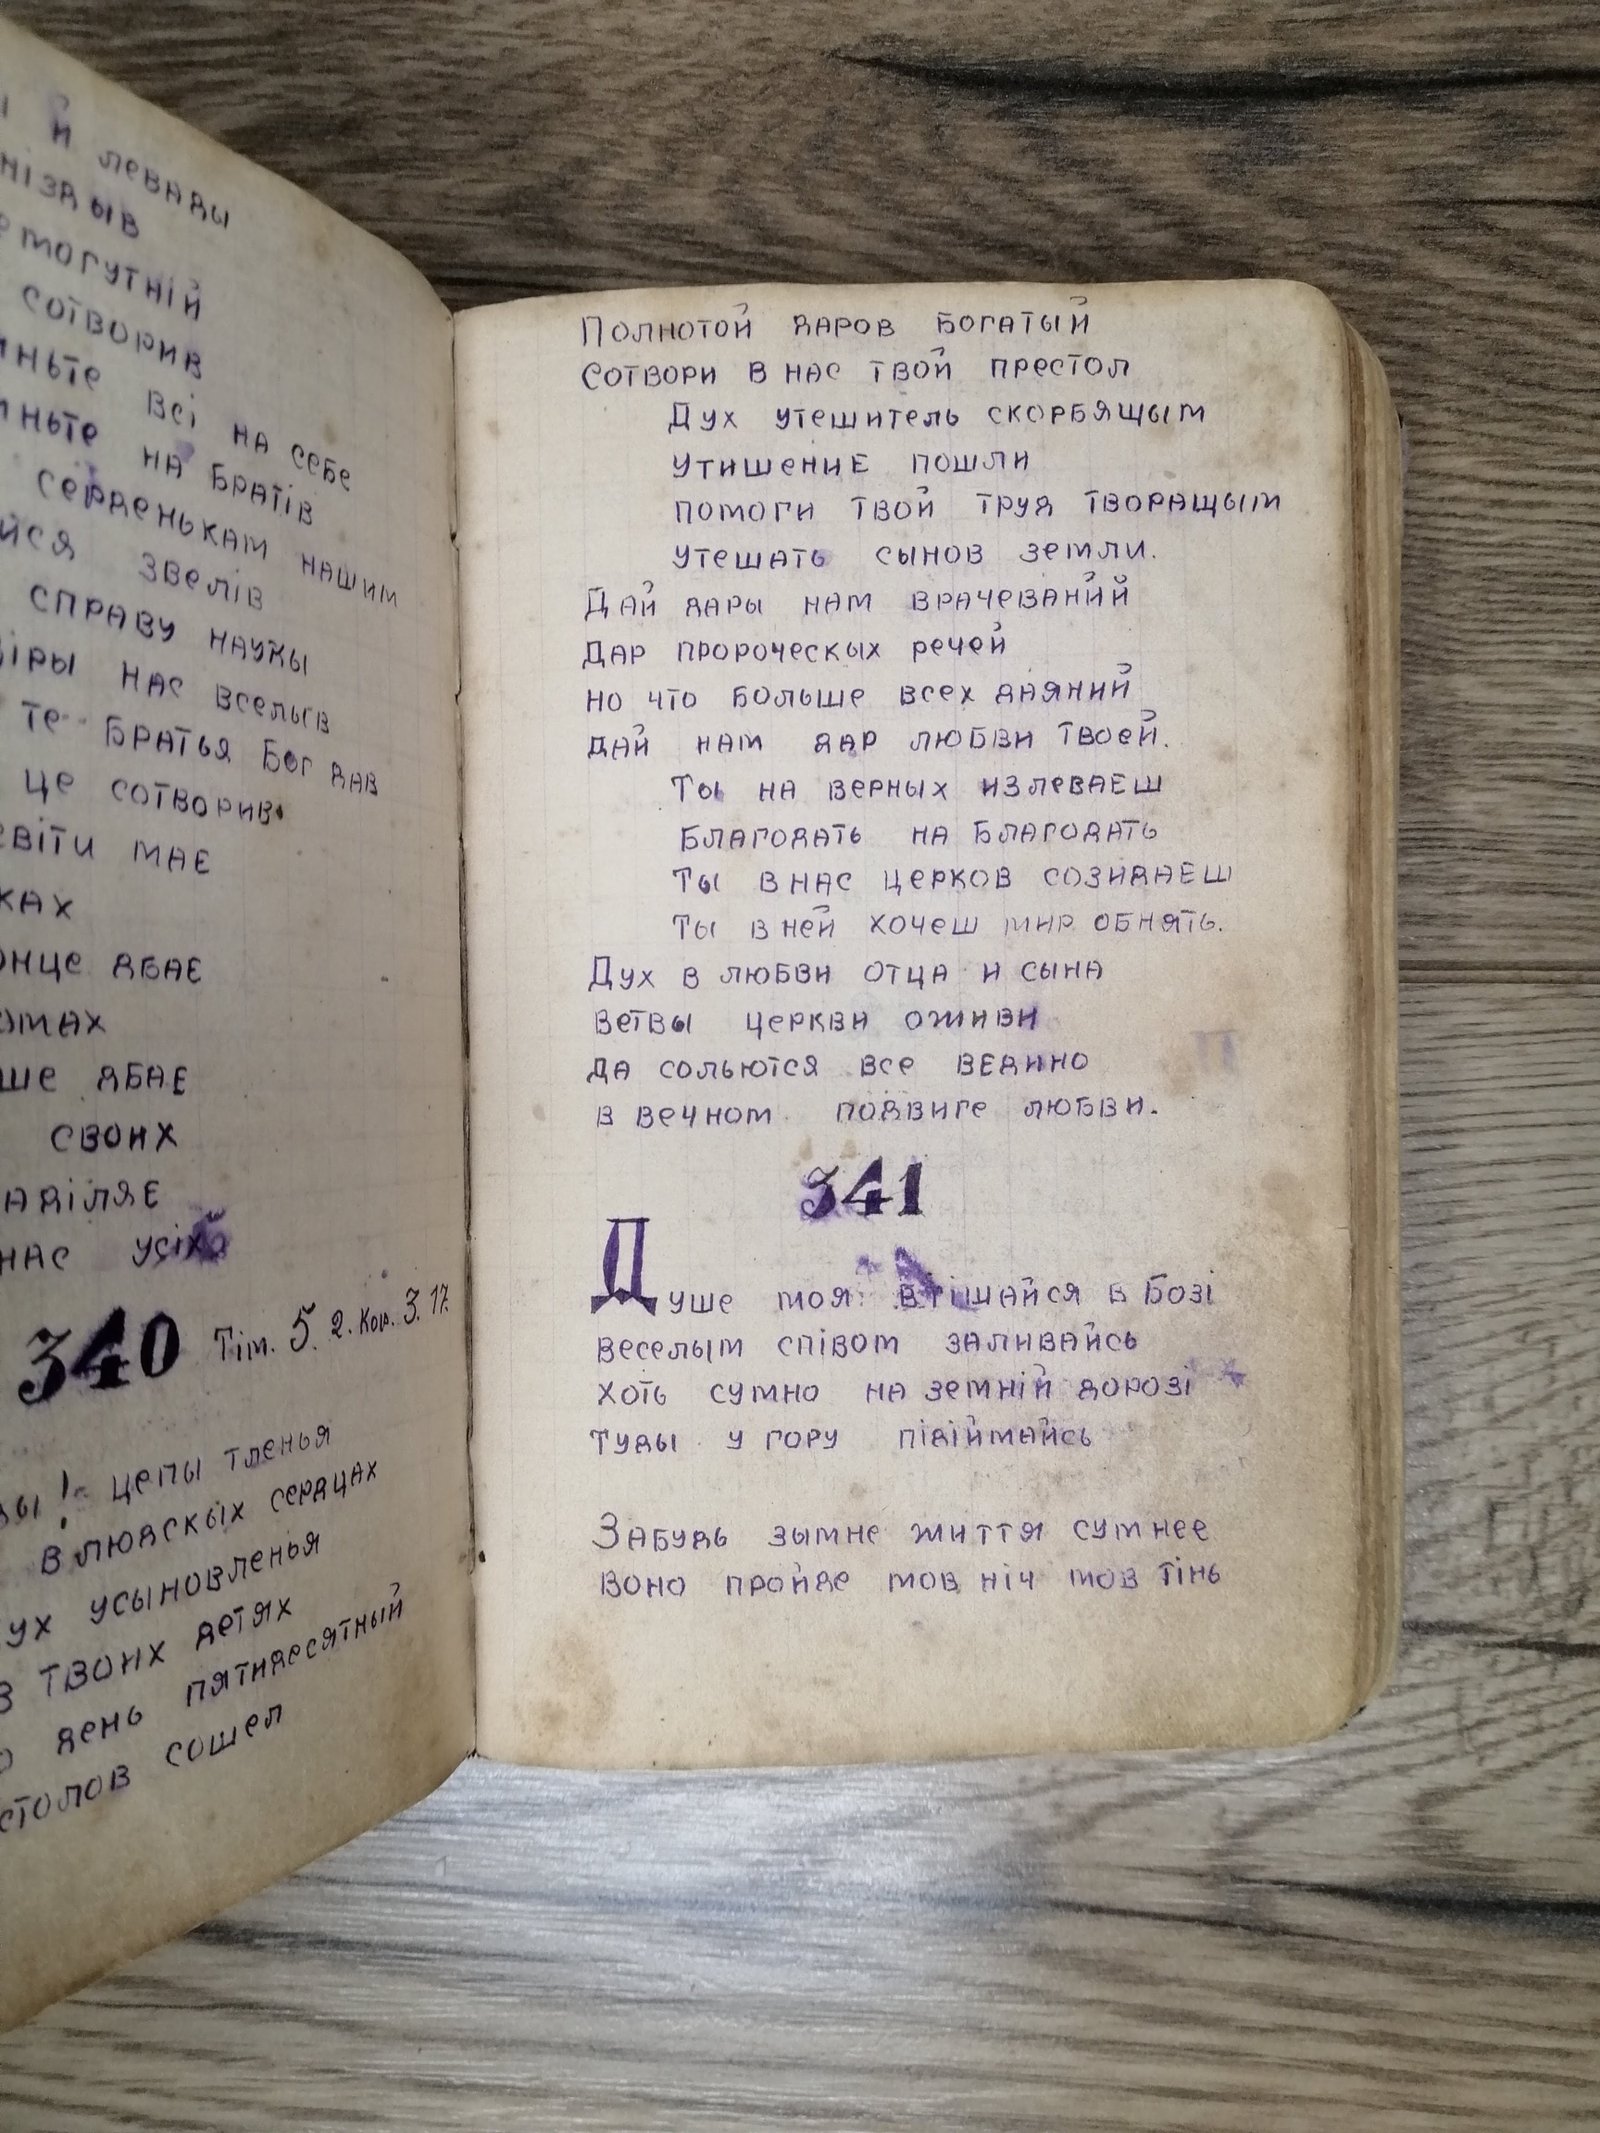 й левады
сотворив
всі на себе
на братів
серденькам нашим
звелів
справу наукы
нас вселыв
те братья Бог дав
це сотворив.
має
дбає
дбає
своих
нас усіх
340 Тім. 5. 2. Кор. 3. 17.
! цепы тленья
в людскых сердцах
усыновленья
твоих детях
день пятндесятный
сошел
Полнотой даров богатый
Сотвори в нас твой престол
Дух утешитель скорбящым
утишение пошли
помоги твой труд творащым
утешать сынов земли.
Дай дары нам врачеваний
Дар пророческых речей
но что больше всех даяний
дай нам дар любви твоей.
Ты на верных излеваеш
Благодать на благодать
ты в нас церков созидаеш
ты в ней хочеш мир обнять.
Дух в любви отца и сына
ветвы церкви оживи
да сольются все ведино
в вечном подвиге любви.
341
Душе моя втішайся в Бозі
веселым співом заливайсь
хоть сумно на земній дорозі
туды у гору підіймайсь
Забудь зымне життя сумнее
воно пройде мов ніч мов тінь